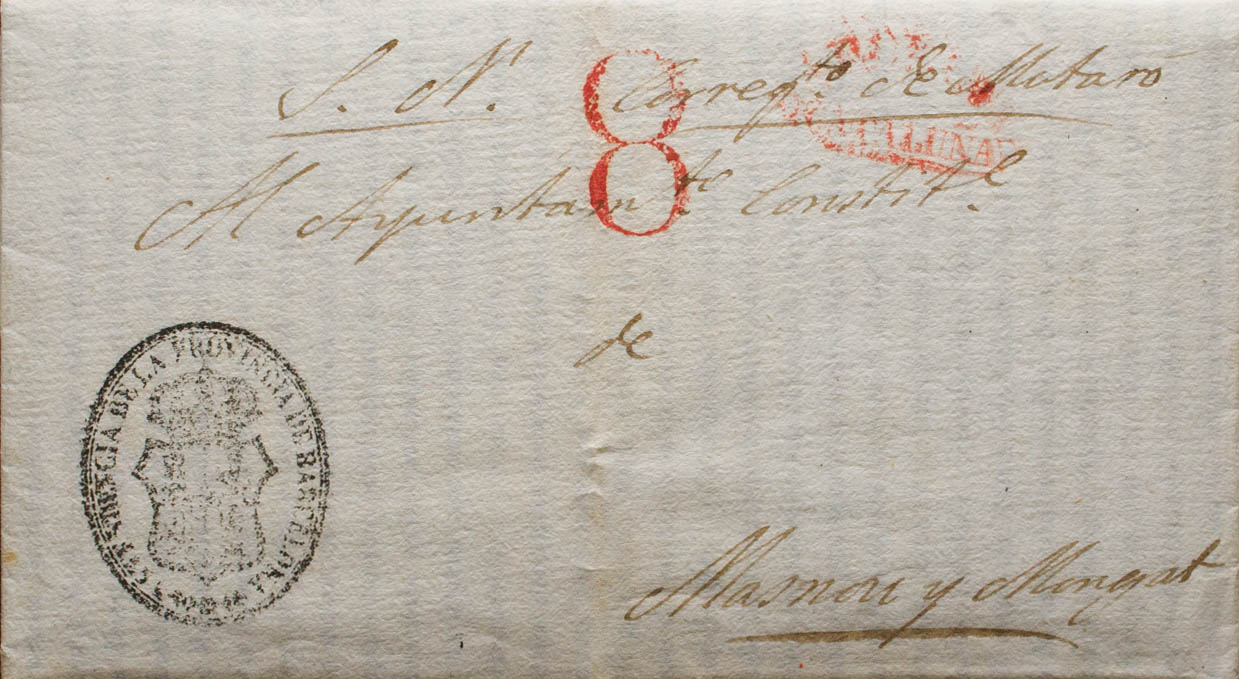 S. N.¹ Correg.to de Mataró
8
CATALUÑA
Al Ayuntam.to Constit.l
de
INTENDENCIA DE LA PROVINCIA DE BARCELONA
Masnou y Mongat